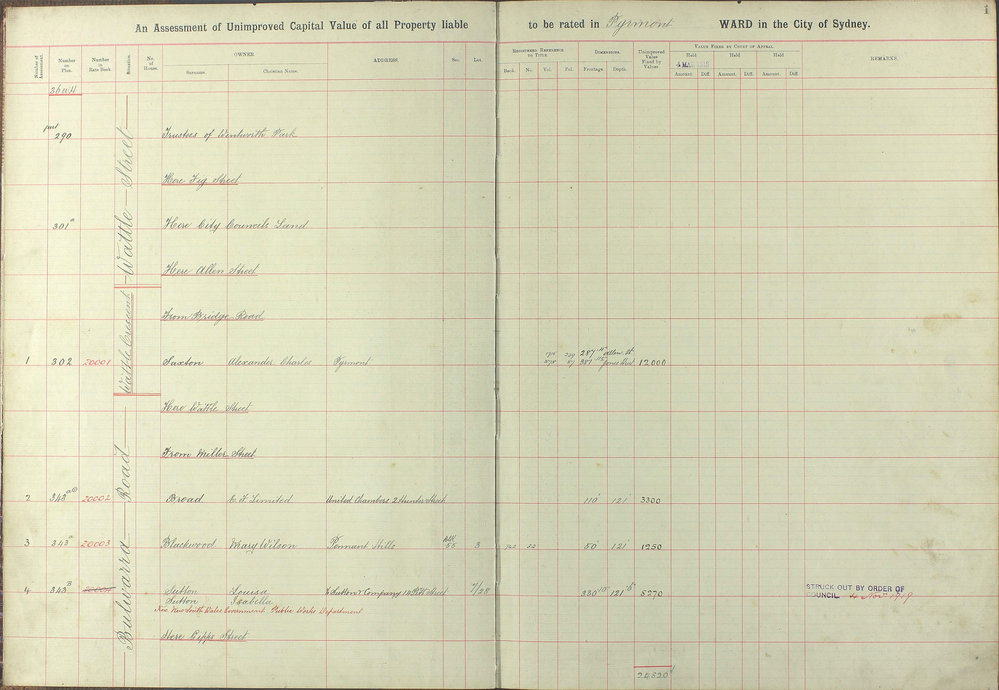 An Assessment of Unimproved Capital Value of all Property liable to be rated in Pyrmont WARD in the City of Sydney.
1
Number of Assessment. Number on Plan. Number in Rate Book. Situation. No. of House. OWNER. Surname. Christian Name. ADDRESS. Sec. Lot. REGISTERED REFERENCE TO TITLE. Book. No. Vol. Fol. DIMENSIONS. Frontage. Depth. Unimproved Value Fixed by Valuer VALUE FIXED BY COURT OF APPEAL Held Held Held Amount. Diff. Amount. Diff. Amount. Diff REMARKS.
part 290 Trustees of Wentworth Park
Wattle Street
Here Fig Street
301 Here City Councils Land
Here Allen Street
From Bridge Road
Wattle Crescent
1 302 20001 Saxton Alexander Charles Pyrmont 287 Allen St 12000
Here Wattle Street
From Miller Street
Bulwarra Road
2 343 20002 Broad C F Limited United Chambers 2 Hunter Street 110' 121' 3300
3 343 20003 Blackwood Mary Wilson Pennant Hills 55 3 50' 121' 1250
4 343B 20004 Sutton Louisa Sutton & Company Street 7/28 330 121 8270
Sutton Isabella
New South Wales Government Public Works Department
STRUCK OUT BY ORDER OF COUNCIL 4 Nov 1919
Here Pipps Street
24820